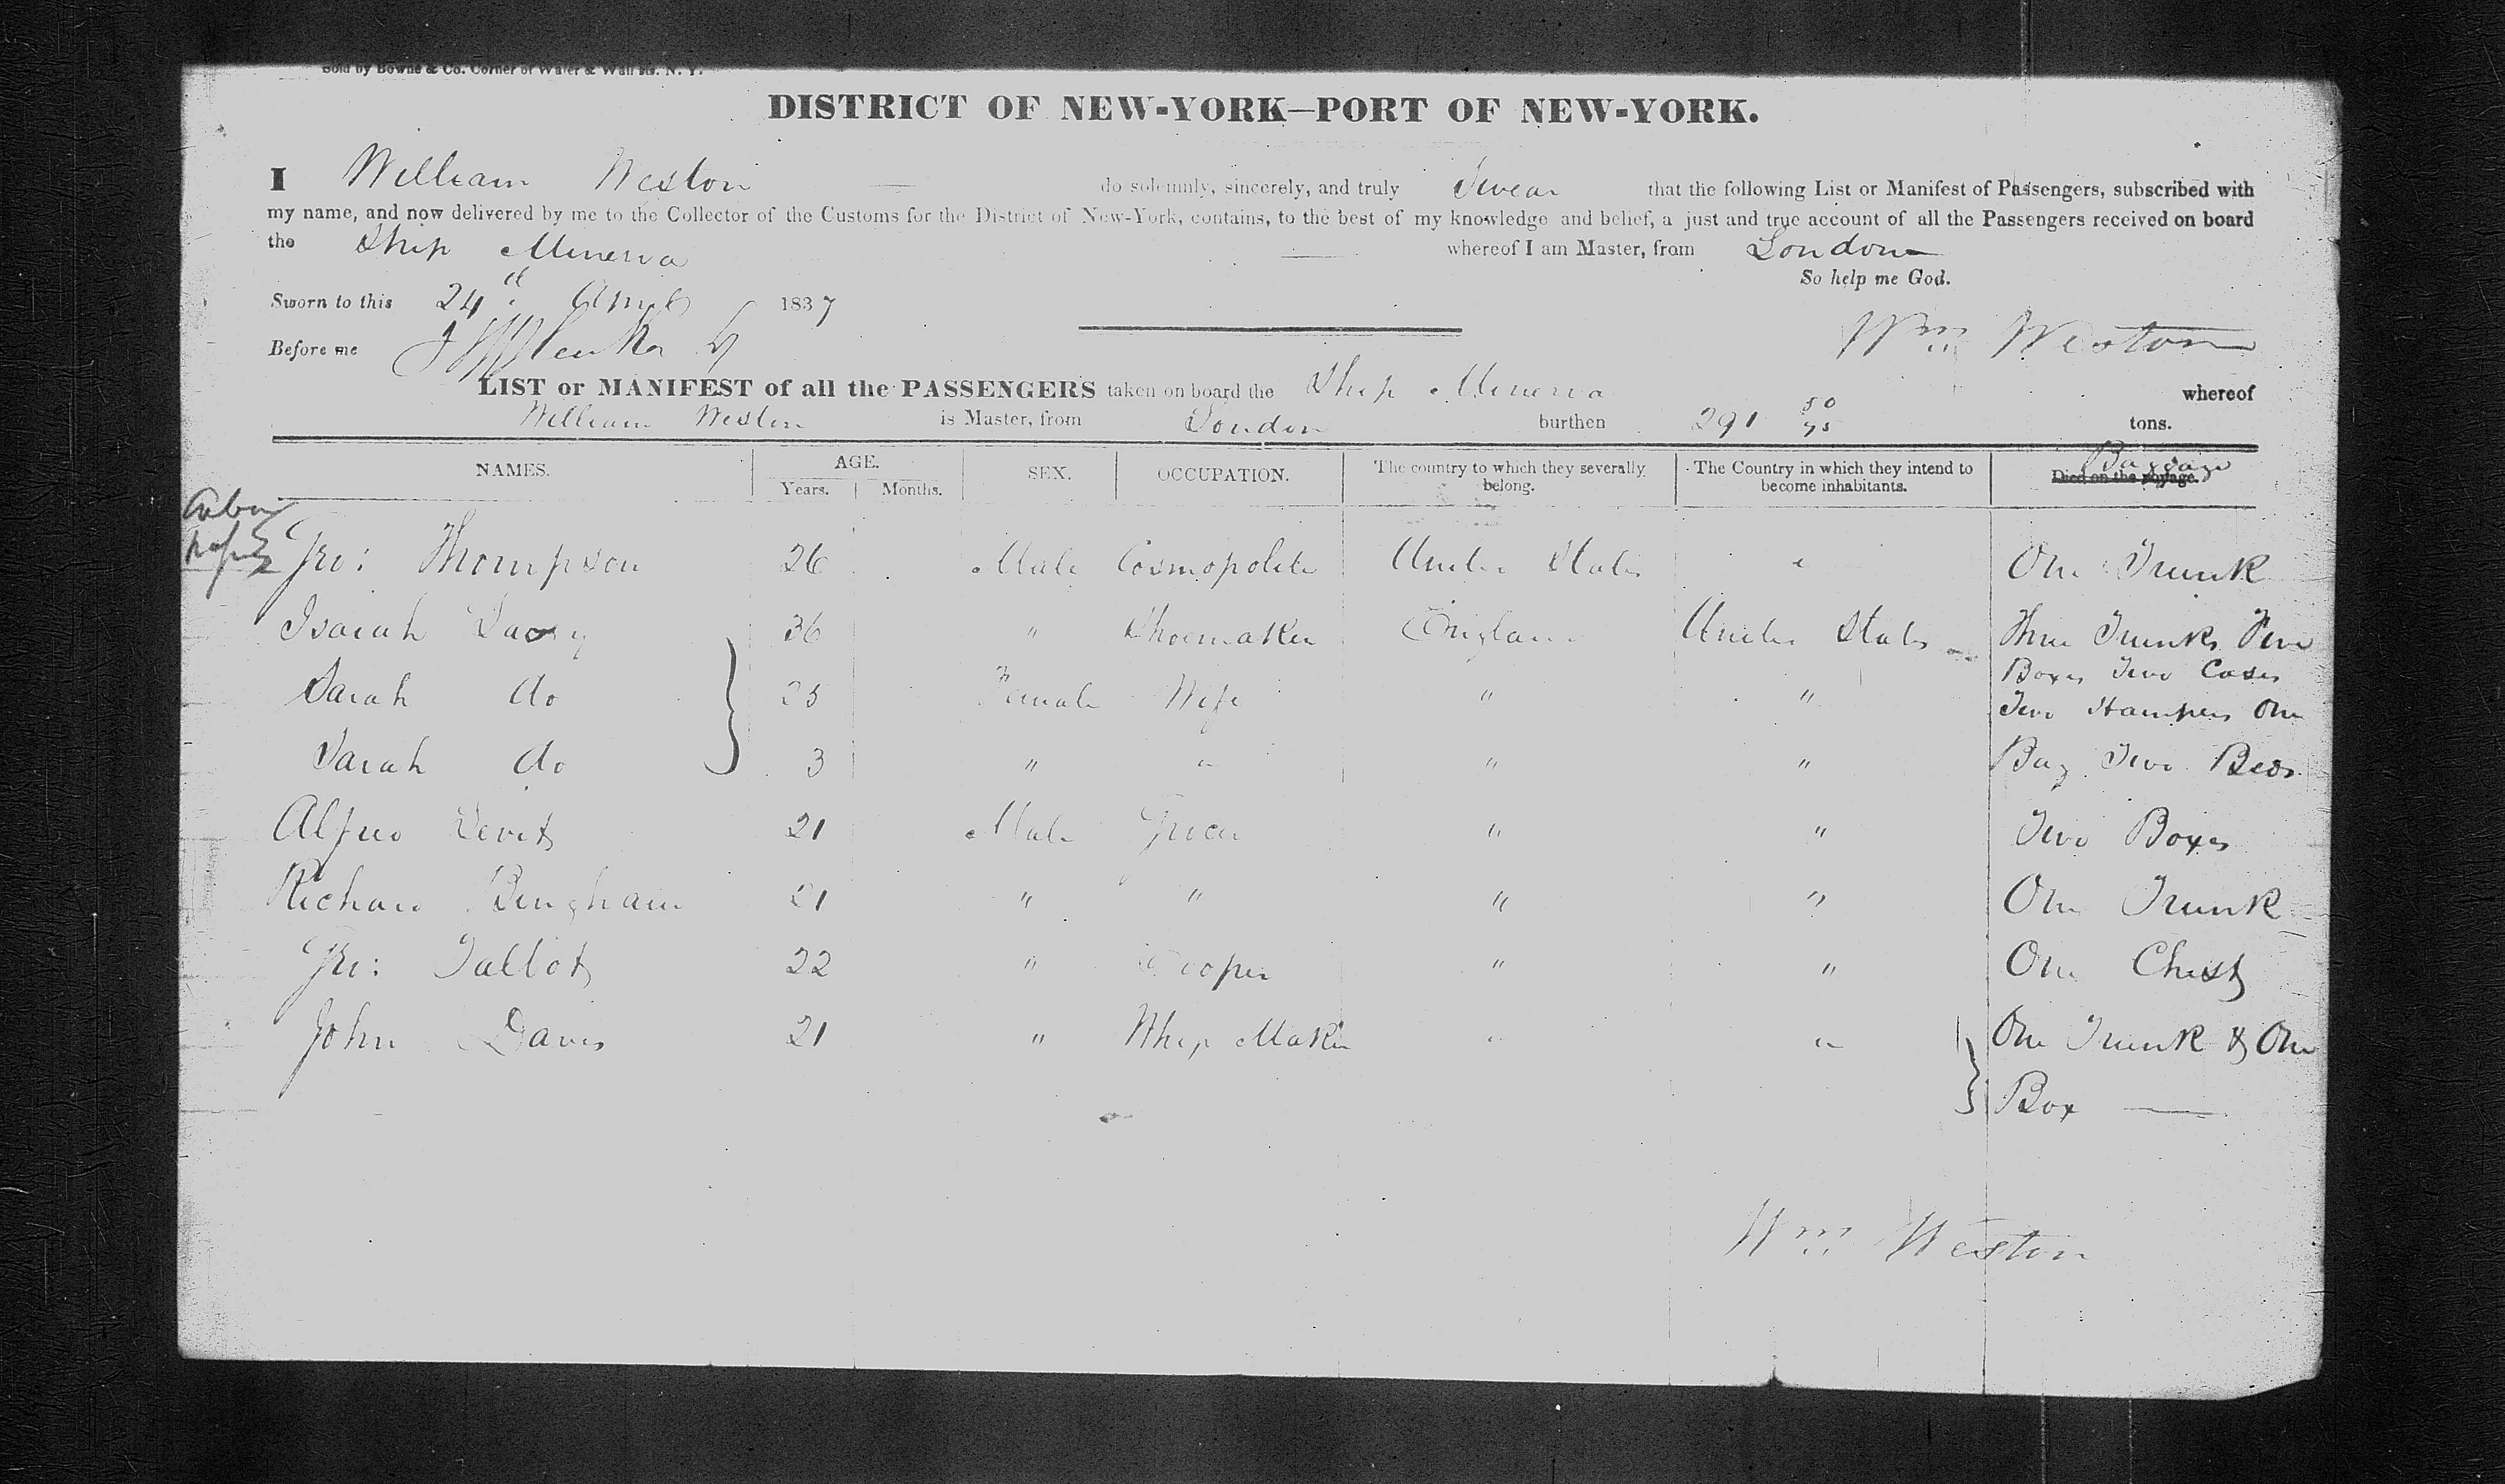 Sold by Bowne & Co. Corner of Water & Wall sts. N. Y.
DISTRICT OF NEW-YORK—PORT OF NEW-YORK.
I William Weston — do solemnly, sincerely, and truly Swear that the following List or Manifest of Passengers, subscribed with
my name, and now delivered by me to the Collector of the Customs for the District of New-York, contains, to the best of my knowledge and belief, a just and true account of all the Passengers received on board
the Ship Minerva — whereof I am Master, from London
So help me God.
Sworn to this 24th 1837
Before me
Wm Weston
LIST or MANIFEST of all the PASSENGERS taken on board the Ship Minerva whereof
William Weston is Master, from London burthen 291 50/95 tons.
NAMES. AGE. Years. Months. SEX. OCCUPATION. The country to which they severally belong. The Country in which they intend to become inhabitants. Died on the voyage. Baggage
Cabin
Geo: Thompson 26 Male Cosmopolite United States " One Trunk
Isaiah 36 " Shoemaker England United States Three Trunks Five
Boxes Two Cases
Sarah do 25 Female Wife " " Two Hampers One
Sarah do 3 " " " " Bag Two Beds
Alfred Levit 21 Male Grocer " " Two Boxes
Richard Bingham 21 " " " " One Trunk
Geo: Talbot 22 " Cooper " " One Chest
John Davis 21 " Whip Maker " " One Trunk & One
Box —
Wm Weston